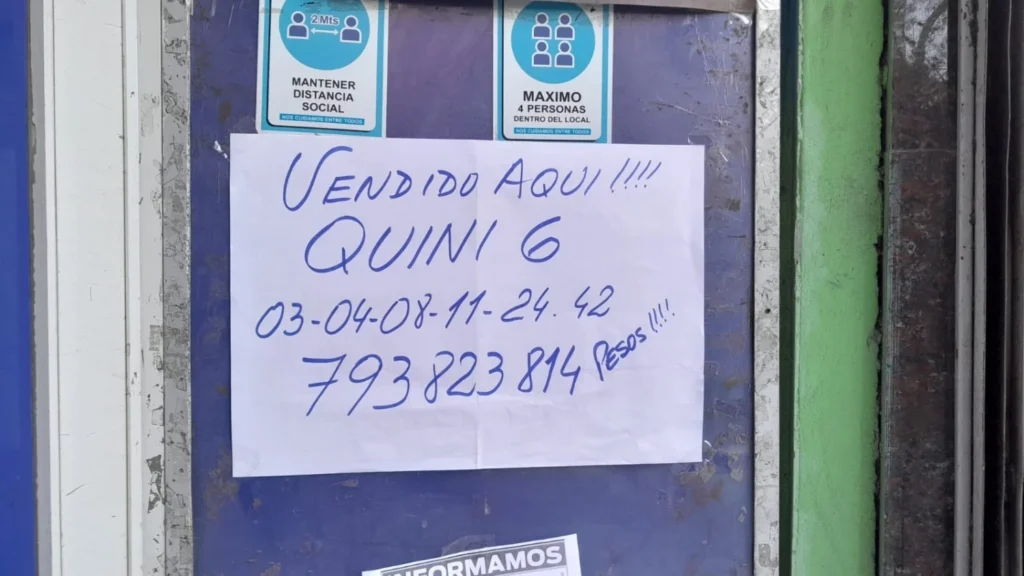 2 Mts
MANTENER
DISTANCIA
SOCIAL
NOS CUIDAMOS ENTRE TODOS
MAXIMO
4 PERSONAS
DENTRO DEL LOCAL
NOS CUIDAMOS ENTRE TODOS
VENDIDO AQUI!!!!
QUINI 6
03-04-08-11-24.42
793823814 PESOS!!!!
INFORMAMOS